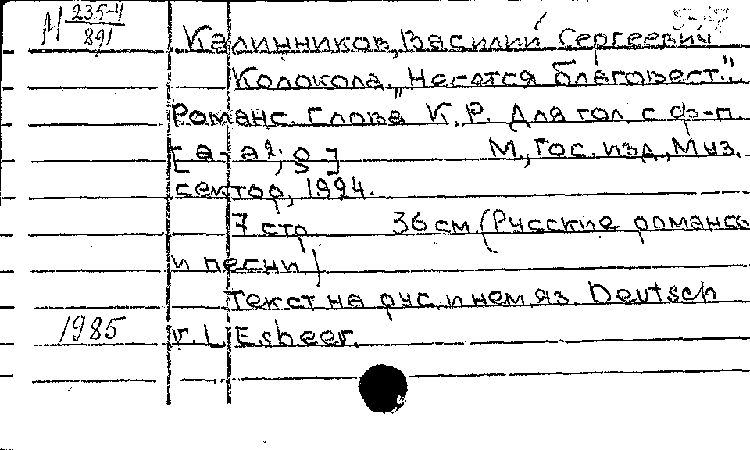 М 235-4
891
Калинников, Василий Сергеевич
Колокола. „Несется благовест.."
Романс. Слова К. Р. Для гол. с ф-п.
[a-a²; g]   М., Гос. изд., Муз.
сектор, 1924.
7 стр   36 см (Русские романсы
и песни)
Текст на рус. и нем. яз. Deutsch
1985 v. L. Esbeer.